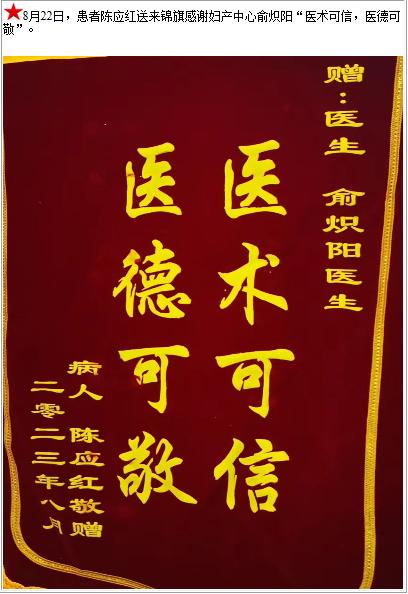 8月22日，患者陈应红送来锦旗感谢妇产中心俞炽阳“医术可信，医德可
敬”。
赠：医生 俞炽阳医生
医术可信
医德可敬
病人 陈应红敬赠
二零二三年八月